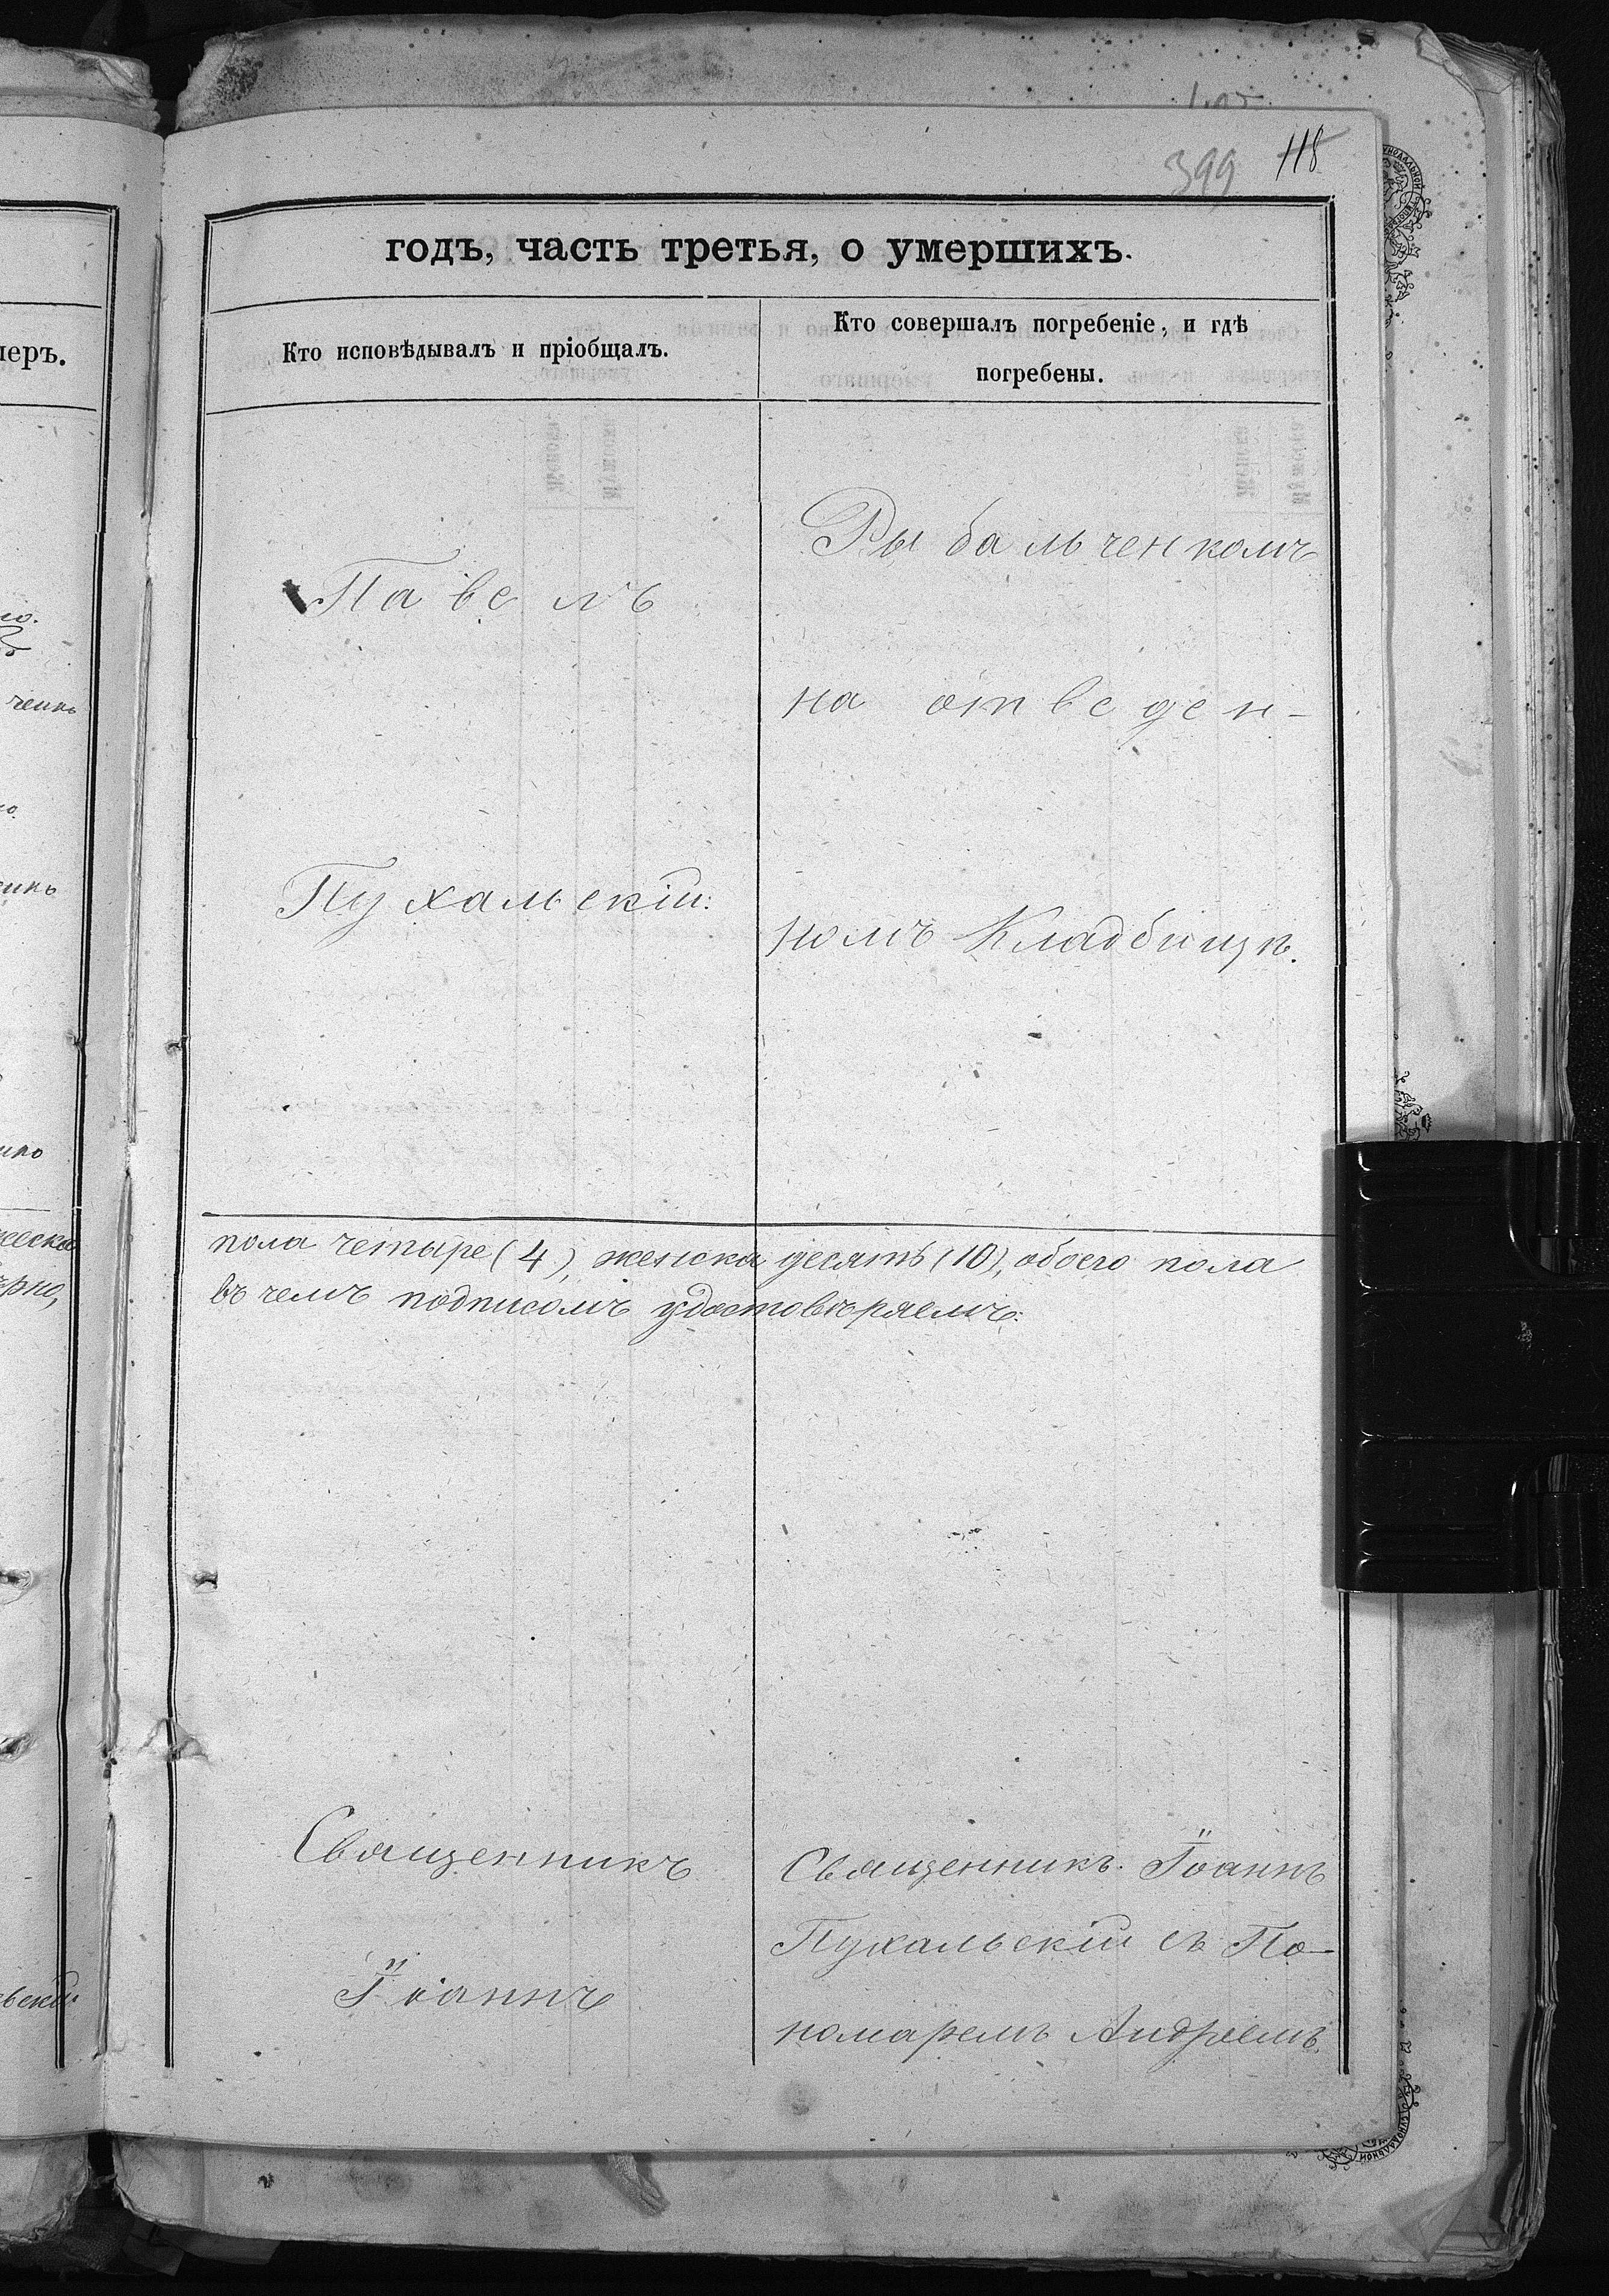 399 118
годъ, часть третья, о умершихъ.
Кто исповѣдывалъ и пріобщалъ.
Кто совершалъ погребеніе, и гдѣ
погребены.
меръ.
Павелъ
Пухальскій:
Рыбальченкомъ
на отведен-
номъ Кладбищѣ.
пола четыре (4), женска десять (10), обоего пола
въ чемъ подписомъ удостовѣряемъ:
Священникъ
Іоаннъ
Священникъ Іоаннъ
Пухальскій съ По-
номаремъ Андреемъ